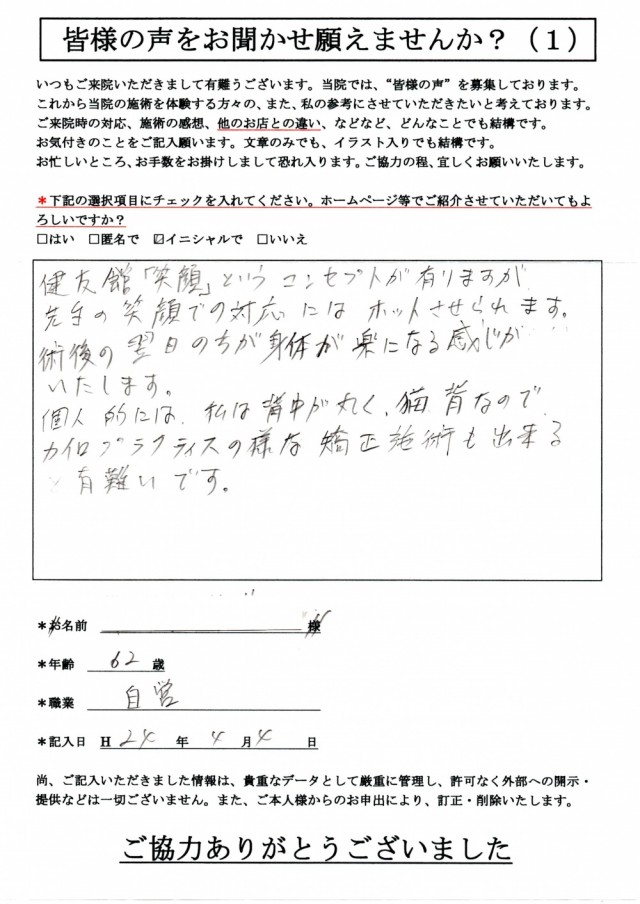 皆様の声をお聞かせ願えませんか？（１）
いつもご来院いただきまして有難うございます。当院では、“皆様の声”を募集しております。
これから当院の施術を体験する方々の、また、私の参考にさせていただきたいと考えております。
ご来院時の対応、施術の感想、他のお店との違い、などなど、どんなことでも結構です。
お気付きのことをご記入願います。文章のみでも、イラスト入りでも結構です。
お忙しいところ、お手数をお掛けしまして恐れ入ります。ご協力の程、宜しくお願いいたします。
＊下記の選択項目にチェックを入れてください。ホームページ等でご紹介させていただいてもよ
ろしいですか？
□はい　□匿名で　☑イニシャルで　□いいえ
健友館「笑顔」というコンセプトが有りますが
先生の笑顔での対応にはホットさせられます。
術後の翌日のちが身体が楽になる感じが
いたします。
個人的には、私は背中が丸く、猫背なので、
カイロプラクティスの様な矯正施術も出来る
と有難いです。
＊お名前　様
＊年齢　62　歳
＊職業　自営
＊記入日　H　24　年　4　月　4　日
尚、ご記入いただきました情報は、貴重なデータとして厳重に管理し、許可なく外部への開示・
提供などは一切ございません。また、ご本人様からのお申出により、訂正・削除いたします。
ご協力ありがとうございました